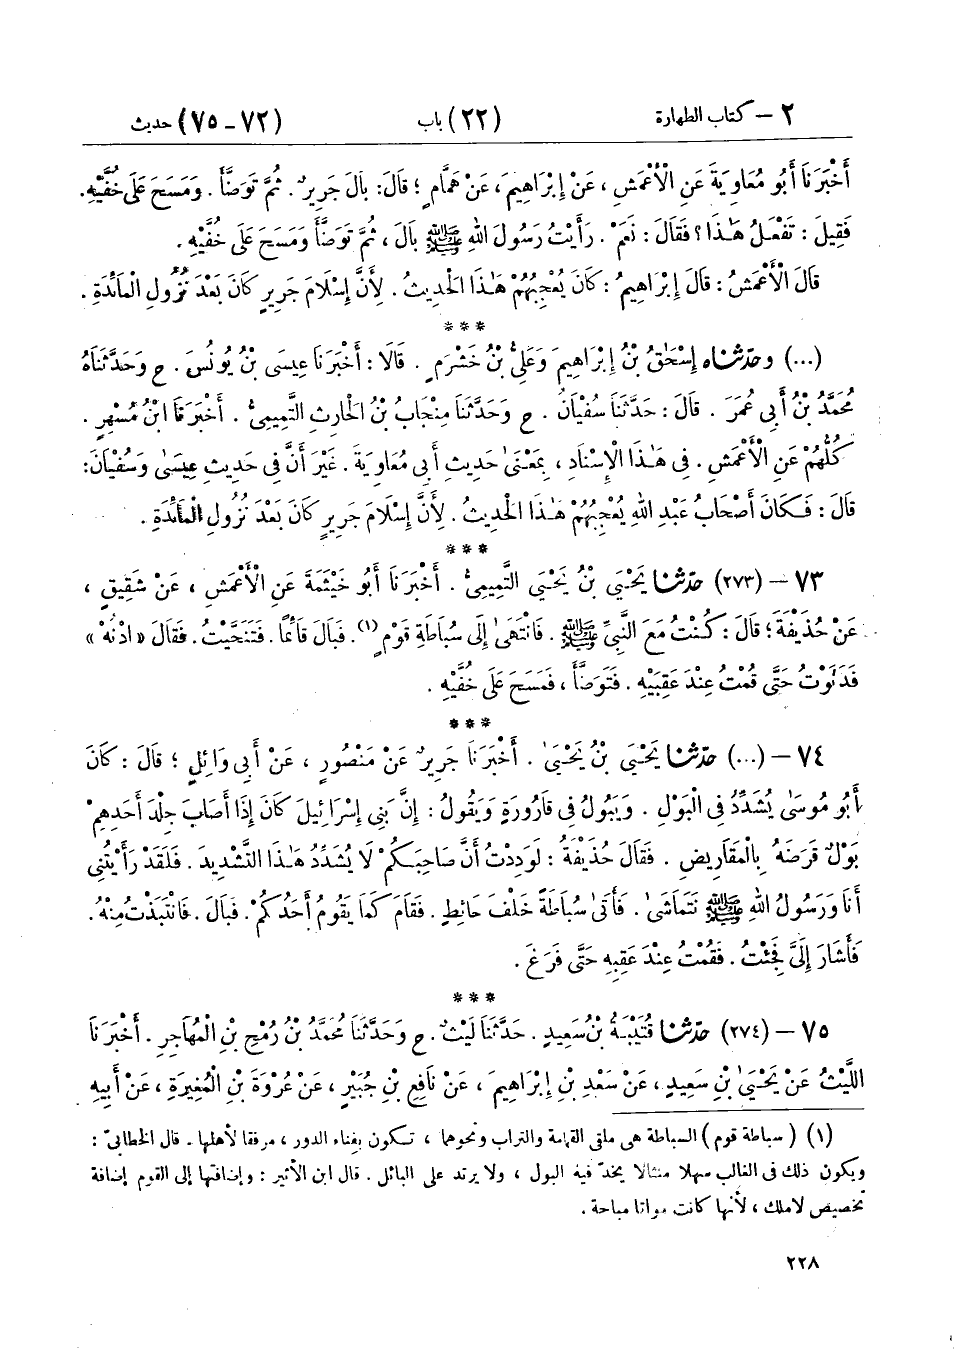 ٢ – كتاب الطهارة (٢٢) باب (٧٢-٧٥) حديث
أَخْبَرَنَا أَبُو مُعَاوِيَةَ عَنِ الْأَعْمَشِ، عَنْ إِبْرَاهِيمَ، عَنْ هَمَّامٍ؛ قَالَ: بَالَ جَرِيرٌ. ثُمَّ تَوَضَّأَ. وَمَسَحَ عَلَى خُفَّيْهِ.
فَقِيلَ: تَفْعَلُ هَٰذَا؟ فَقَالَ: نَعَمْ. رَأَيْتُ رَسُولَ اللهِ ﷺ بَالَ، ثُمَّ تَوَضَّأَ وَمَسَحَ عَلَى خُفَّيْهِ.
قَالَ الْأَعْمَشُ: قَالَ إِبْرَاهِيمُ: كَانَ يُعْجِبُهُمْ هَٰذَا الْحَدِيثُ. لِأَنَّ إِسْلَامَ جَرِيرٍ كَانَ بَعْدَ نُزُولِ الْمَائِدَةِ.
***
(...) وحدّثناه إِسْحَٰقُ بْنُ إِبْرَاهِيمَ وَعَلِيُّ بْنُ خَشْرَمٍ. قَالَا: أَخْبَرَنَا عِيسَى بْنُ يُونُسَ. ح وَحَدَّثَنَاهُ
مُحَمَّدُ بْنُ أَبِي عُمَرَ. قَالَ: حَدَّثَنَا سُفْيَانُ. ح وَحَدَّثَنَا مِنْجَابُ بْنُ الْحَارِثِ التَّمِيمِيُّ. أَخْبَرَنَا ابْنُ مُسْهِرٍ.
كُلُّهُمْ عَنِ الْأَعْمَشِ. فِي هَٰذَا الْإِسْنَادِ، بِمَعْنَىٰ حَدِيثِ أَبِي مُعَاوِيَةَ. غَيْرَ أَنَّ فِي حَدِيثِ عِيسَىٰ وَسُفْيَانَ:
قَالَ: فَكَانَ أَصْحَابُ عَبْدِ اللهِ يُعْجِبُهُمْ هَٰذَا الْحَدِيثُ. لِأَنَّ إِسْلَامَ جَرِيرٍ كَانَ بَعْدَ نُزُولِ الْمَائِدَةِ.
***
٧٣ – (٢٧٣) حدّثنا يَحْيَى بْنُ يَحْيَى التَّمِيمِيُّ. أَخْبَرَنَا أَبُو خَيْثَمَةَ عَنِ الْأَعْمَشِ، عَنْ شَقِيقٍ،
عَنْ حُذَيْفَةَ؛ قَالَ: كُنْتُ مَعَ النَّبِيِّ ﷺ. فَانْتَهَىٰ إِلَى سُبَاطَةِ قَوْمٍ (١). فَبَالَ قَائِمًا. فَتَنَحَّيْتُ. فَقَالَ «ادْنُهْ»
فَدَنَوْتُ حَتَّى قُمْتُ عِنْدَ عَقِبَيْهِ. فَتَوَضَّأَ، فَمَسَحَ عَلَى خُفَّيْهِ.
***
٧٤ – (...) حدّثنا يَحْيَى بْنُ يَحْيَىٰ. أَخْبَرَنَا جَرِيرٌ عَنْ مَنْصُورٍ، عَنْ أَبِي وَائِلٍ؛ قَالَ: كَانَ
أَبُو مُوسَىٰ يُشَدِّدُ فِي الْبَوْلِ. وَيَبُولُ فِي قَارُورَةٍ وَيَقُولُ: إِنَّ بَنِي إِسْرَائِيلَ كَانَ إِذَا أَصَابَ جِلْدَ أَحَدِهِمْ
بَوْلٌ قَرَضَهُ بِالْمَقَارِيضِ. فَقَالَ حُذَيْفَةُ: لَوَدِدْتُ أَنَّ صَاحِبَكُمْ لَا يُشَدِّدُ هَٰذَا التَّشْدِيدَ. فَلَقَدْ رَأَيْتُنِي
أَنَا وَرَسُولُ اللهِ ﷺ نَتَمَاشَىٰ. فَأَتَىٰ سُبَاطَةً خَلْفَ حَائِطٍ. فَقَامَ كَمَا يَقُومُ أَحَدُكُمْ. فَبَالَ. فَانْتَبَذْتُ مِنْهُ.
فَأَشَارَ إِلَيَّ فَجِئْتُ. فَقُمْتُ عِنْدَ عَقِبِهِ حَتَّى فَرَغَ.
***
٧٥ – (٢٧٤) حدّثنا قُتَيْبَةُ بْنُ سَعِيدٍ. حَدَّثَنَا لَيْثٌ. ح وَحَدَّثَنَا مُحَمَّدُ بْنُ رُمْحِ بْنِ الْمُهَاجِرِ. أَخْبَرَنَا
اللَّيْثُ عَنْ يَحْيَىٰ بْنِ سَعِيدٍ، عَنْ سَعْدِ بْنِ إِبْرَاهِيمَ، عَنْ نَافِعِ بْنِ جُبَيْرٍ، عَنْ عُرْوَةَ بْنِ الْمُغِيرَةِ، عَنْ أَبِيهِ
(١) (سباطة قوم) السباطة هي ملقى القمامة والتراب ونحوهما، تكون بفناء الدور، مرفقا لأهلها. قال الخطابيّ:
ويكون ذلك في الغالب سهلا منثالا يخدّ فيه البول، ولا يرتد على البائل. قال ابن الأثير: وإضافتها إلى القوم إضافة
تخصيص لا ملك، لأنها كانت مواتا مباحة.
٢٢٨